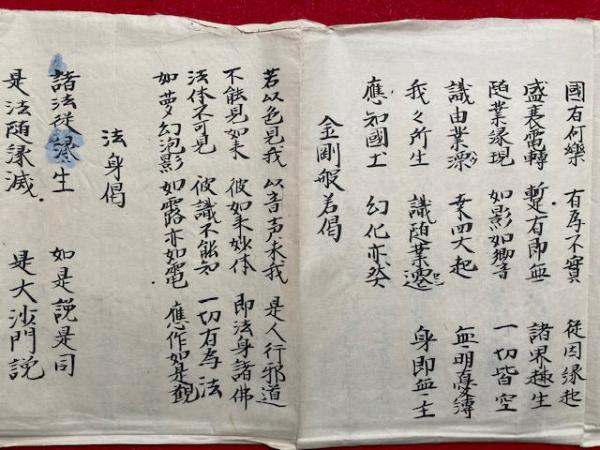 國有何樂 有為不實 從因緣起
盛衰電轉 暫有即無 諸界趣生
随業緣現 如影如響 一切皆空
識由業漂 乗四大起 無明愛縛
我々所生 識随業遷 身即無主
應知國土 幻化亦然
金剛般若偈
若以色見我 以音声求我 是人行邪道
不能見如来 彼如来妙体 即法身諸佛
法体不可見 彼識不能知 一切有為法
如夢幻泡影 如露亦如電 應作如是觀
法身偈
諸法従緣生 如是説是同
是法随緣滅 是大沙門説